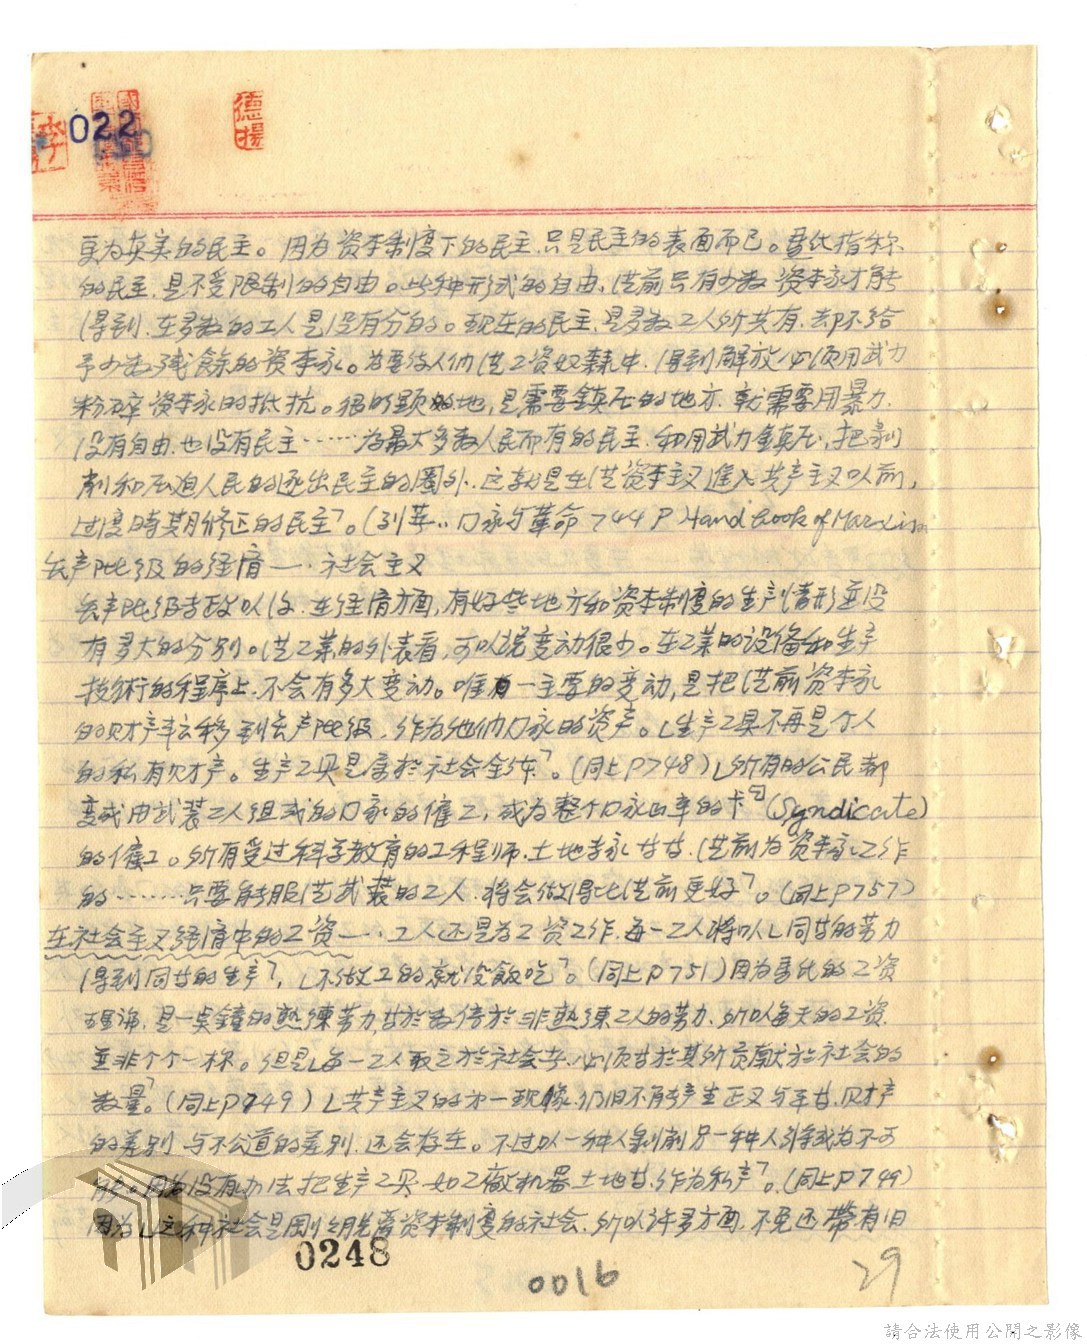 022
德揚
李
更为真实的民主。因为资本制度下的民主只是民主的表面而已。馬氏指称
的民主,是不受限制的自由。此种形式的自由,從前只有少数资本家才能
得到,在多数的工人是没有分的。现在的民主,是多数工人所共有,却不给
予少数残餘的资本家。为要使人们從工资奴隸中,得到解放必须用武力
粉碎资本家的抵抗。很明顕的地,是需要鎮压的地方,就需要用暴力,
没有自由,也没有民主……为最大多数人民而有的民主,和用武力鎮压,把剥
削和压迫人民的逐出民主的圈外,这就是在從资本主义進入共产主义以前,
过渡時期修正的民主﹂。(列寧:国家与革命 744 P Handbook of Marxism
无产阶级的经濟—:社会主义
无产阶级专政以後,在经濟方面,有好些地方和资本制度的生产情形並没
有多大的分别。從工業的外表看,可以说变动很少。在工業的设备和生产
技術的程序上,不会有多大变动。唯有一主要的变动,是把從前资本家
的财产转移到无产阶级,作为他们国家的资产。﹁生产工具不再是个人
的私有财产。生产工具是属於社会全体﹂。(同上P748)﹁所有的公民都
变成由武装工人组成的国家的僱工,成为整个国家的卡(Syndicate)
的僱工。所有受过科学教育的工程师,土地专家等等,從前为资本家工作
的……只要能服從武装的工人,将会做得比從前更好﹂。(同上P757)
在社会主义经濟中的工资—:工人还是为工资工作,每一工人将以﹁同等的劳力
得到同等的生产﹂,﹁不做工的就没飯吃﹂。(同上P751)因为馬氏的工资
理论,是一点鐘的熟練劳力等於数倍於非熟練工人的劳力,所以每天的工资,
並非个个一样。但是﹁每一工人取之於社会者,必须等於其所贡献於社会的
数量﹂。(同上P749)﹁共产主义的第一现像,仍旧不能产生正义与平等,财产
的差别,与不公道的差别,还会存在。不过以一种人剥削另一种人,将成为不可
能。因为没有办法把生产工具,如工廠机器土地等,作为私产﹂。(同上P749)
因为﹁这种社会是剛剛脱离资本制度的社会,所以许多方面,不免还带有旧
0248
0016
29
請合法使用公開之影像